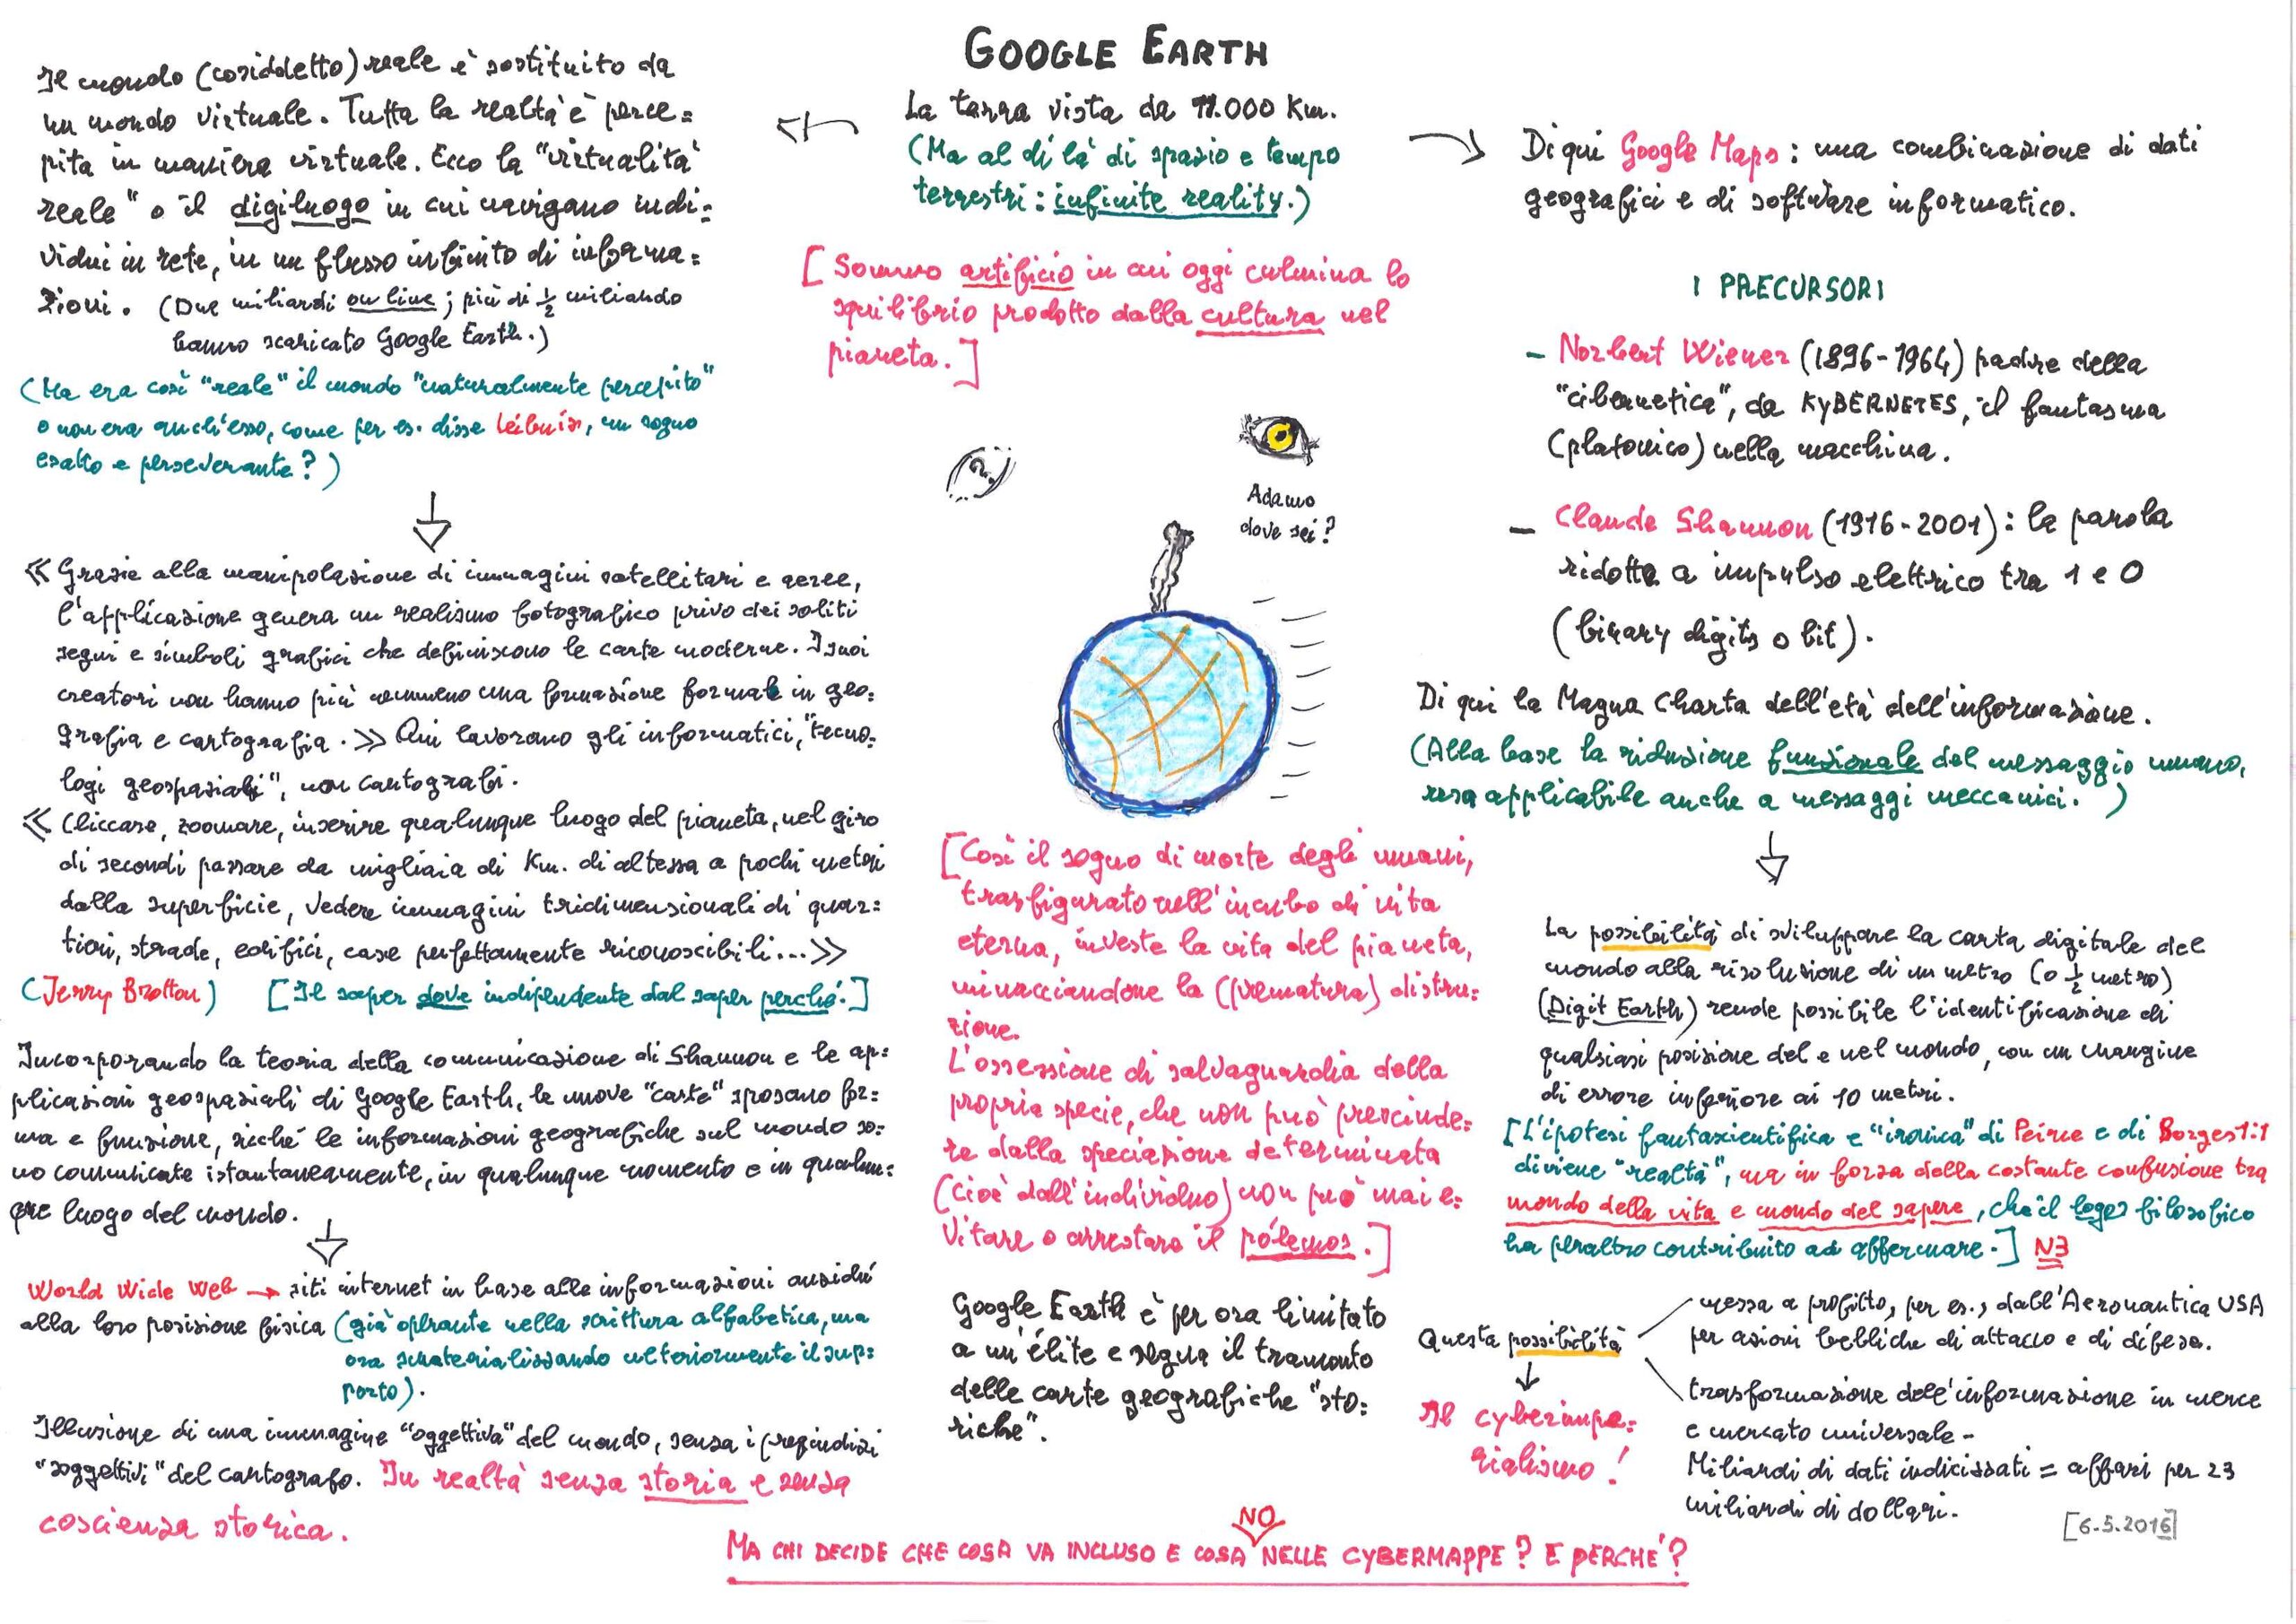 GOOGLE EARTH
La terra vista da 11.000 Km.
(Ma al di là di spazio e tempo
terrestri: infinite reality.)
[Sommo artificio in cui oggi culmina lo
squilibrio prodotto dalla cultura nel
pianeta.]
Adamo
dove sei?
[Così il sogno di morte degli umani,
trasfigurato nell'incubo di vita
eterna, investe la vita del pianeta,
minacciandone la (prematura) distru=
zione.
L'ossessione di salvaguardia della
propria specie, che non può prescinde=
re dalla speciazione determinata
(cioè dall'individuo) non può mai e=
vitare o arrestare il pólemos.]
Google Earth è per ora limitato
a un'élite e segna il tramonto
delle carte geografiche "sto=
riche".
Il mondo (cosiddetto) reale è sostituito da
un mondo virtuale. Tutta la realtà è perce=
pita in maniera virtuale. Ecco la "virtualità
reale" o il digiluogo in cui navigano indi=
vidui in rete, in un flusso infinito di informa=
zioni. (Due miliardi on line; più di ½ miliardo
hanno scaricato Google Earth.)
(Ma era così "reale" il mondo "naturalmente percepito"
o non era anch'esso, come per es. disse Leibniz, un sogno
esatto e perseverante?)
« Grazie alla manipolazione di immagini satellitari e aeree,
l'applicazione genera un realismo fotografico privo dei soliti
segni e simboli grafici che definiscono le carte moderne. I suoi
creatori non hanno più nemmeno una formazione formale in geo=
grafia e cartografia.» Qui lavorano gli informatici, "tecno=
logi geospaziali", non cartografi.
« Cliccare, zoomare, inserire qualunque luogo del pianeta, nel giro
di secondi passare da migliaia di Km. di altezza a pochi metri
dalla superficie, vedere immagini tridimensionali di quar=
tieri, strade, edifici, case perfettamente riconoscibili...»
(Jerry Brotton) [Il saper dove indipendente dal saper perché.]
Incorporando la teoria della comunicazione di Shannon e le ap=
plicazioni geospaziali di Google Earth, le nuove "carte" sposano for=
ma e funzione, sicché le informazioni geografiche sul mondo so=
no comunicate istantaneamente, in qualunque momento e in qualun=
que luogo del mondo.
World Wide Web → siti internet in base alle informazioni anziché
alla loro posizione fisica (già operante nella scrittura alfabetica, ma
ora smaterializzando ulteriormente il sup=
porto).
Illusione di una immagine "oggettiva" del mondo, senza i pregiudizi
"soggettivi" del cartografo. In realtà senza storia e senza
coscienza storica.
Di qui Google Maps: una combinazione di dati
geografici e di software informatico.
I PRECURSORI
- Norbert Wiener (1896-1964) padre della
"cibernetica", da KyBERNETES, il fantasma
(platonico) nella macchina.
- Claude Shannon (1916-2001): la parola
ridotta a impulso elettrico tra 1 e 0
(binary digits o bit).
Di qui la Magna Charta dell'età dell'informazione.
(Alla base la riduzione funzionale del messaggio umano,
resa applicabile anche a messaggi meccanici.)
La possibilità di sviluppare la carta digitale del
mondo alla risoluzione di un metro (o ½ metro)
(Digit Earth) rende possibile l'identificazione di
qualsiasi posizione del e nel mondo, con un margine
di errore inferiore ai 10 metri.
[L'ipotesi fantascientifica e "ironica" di Peirce e di Borges 1:1
diviene "realtà", ma in forza della costante confusione tra
mondo della vita e mondo del sapere, che il logos filosofico
ha peraltro contribuito ad affermare.] N3
Questa possibilità
messa a profitto, per es., dall'Aeronautica USA
per azioni belliche di attacco e di difesa.
trasformazione dell'informazione in merce
e mercato universale -
Miliardi di dati indicizzati = affari per 23
miliardi di dollari.
Il cyberimpe=
rialismo!
[6.5.2016]
NO
MA CHI DECIDE CHE COSA VA INCLUSO E COSA NELLE CYBERMAPPE? E PERCHE'?